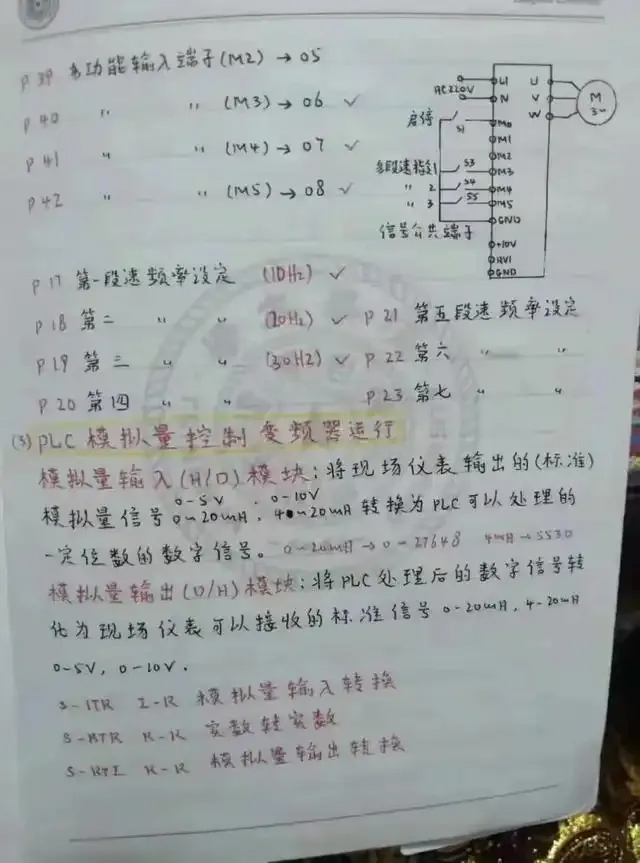 P 39 多功能输入端子(M2) → 05
P 40 〃 〃 (M3) → 06 ✓
P 41 〃 〃 (M4) → 07 ✓
P 42 〃 〃 (M5) → 08 ✓
AC220V
U1 U
N V
W
M
3~
启停 S1 M0
M1
M2
多段速指定1 S3 M3
〃 2 S4 M4
〃 3 S5 M5
信号公共端子 GND
+10V
AVI
GND
P 17 第一段速频率设定 (10Hz) ✓
P 18 第二 〃 〃 (20Hz) ✓ P 21 第五段速频率设定
P 19 第三 〃 〃 (30Hz) ✓ P 22 第六 〃 〃
P 20 第四 〃 〃 P 23 第七 〃 〃
(3) PLC 模拟量控制变频器运行
模拟量输入(A/D)模块:将现场仪表输出的(标准)
0-5V . 0-10V
模拟量信号 0-20mA, 4-20mA 转换为PLC可以处理的
一定位数的数字信号。 0-20mA → 0-27648 4mA → 5530
模拟量输出(D/A)模块:将PLC处理后的数字信号转
化为现场仪表可以接收的标准信号 0-20mA, 4-20mA
0-5V, 0-10V.
S-ITR I-R 模拟量输入转换
S-RTR R-R 实数转实数
S-RTI R-R 模拟量输出转换